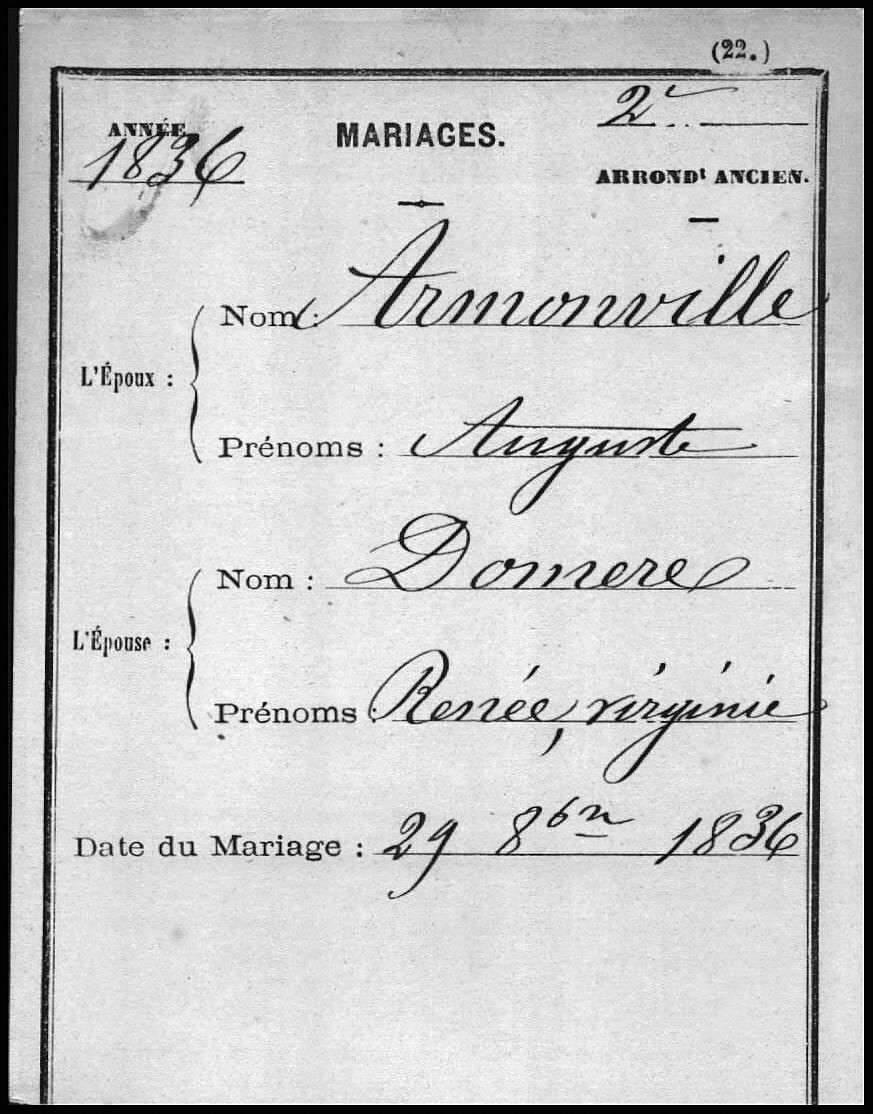 (22.)
ANNÉE
1836
MARIAGES.
2e
ARRONDt ANCIEN.
L'Époux :
Nom : Armonville
Prénoms : Auguste
L'Épouse :
Nom : Domere
Prénoms : Renée, virginie
Date du Mariage : 29 8bre 1836